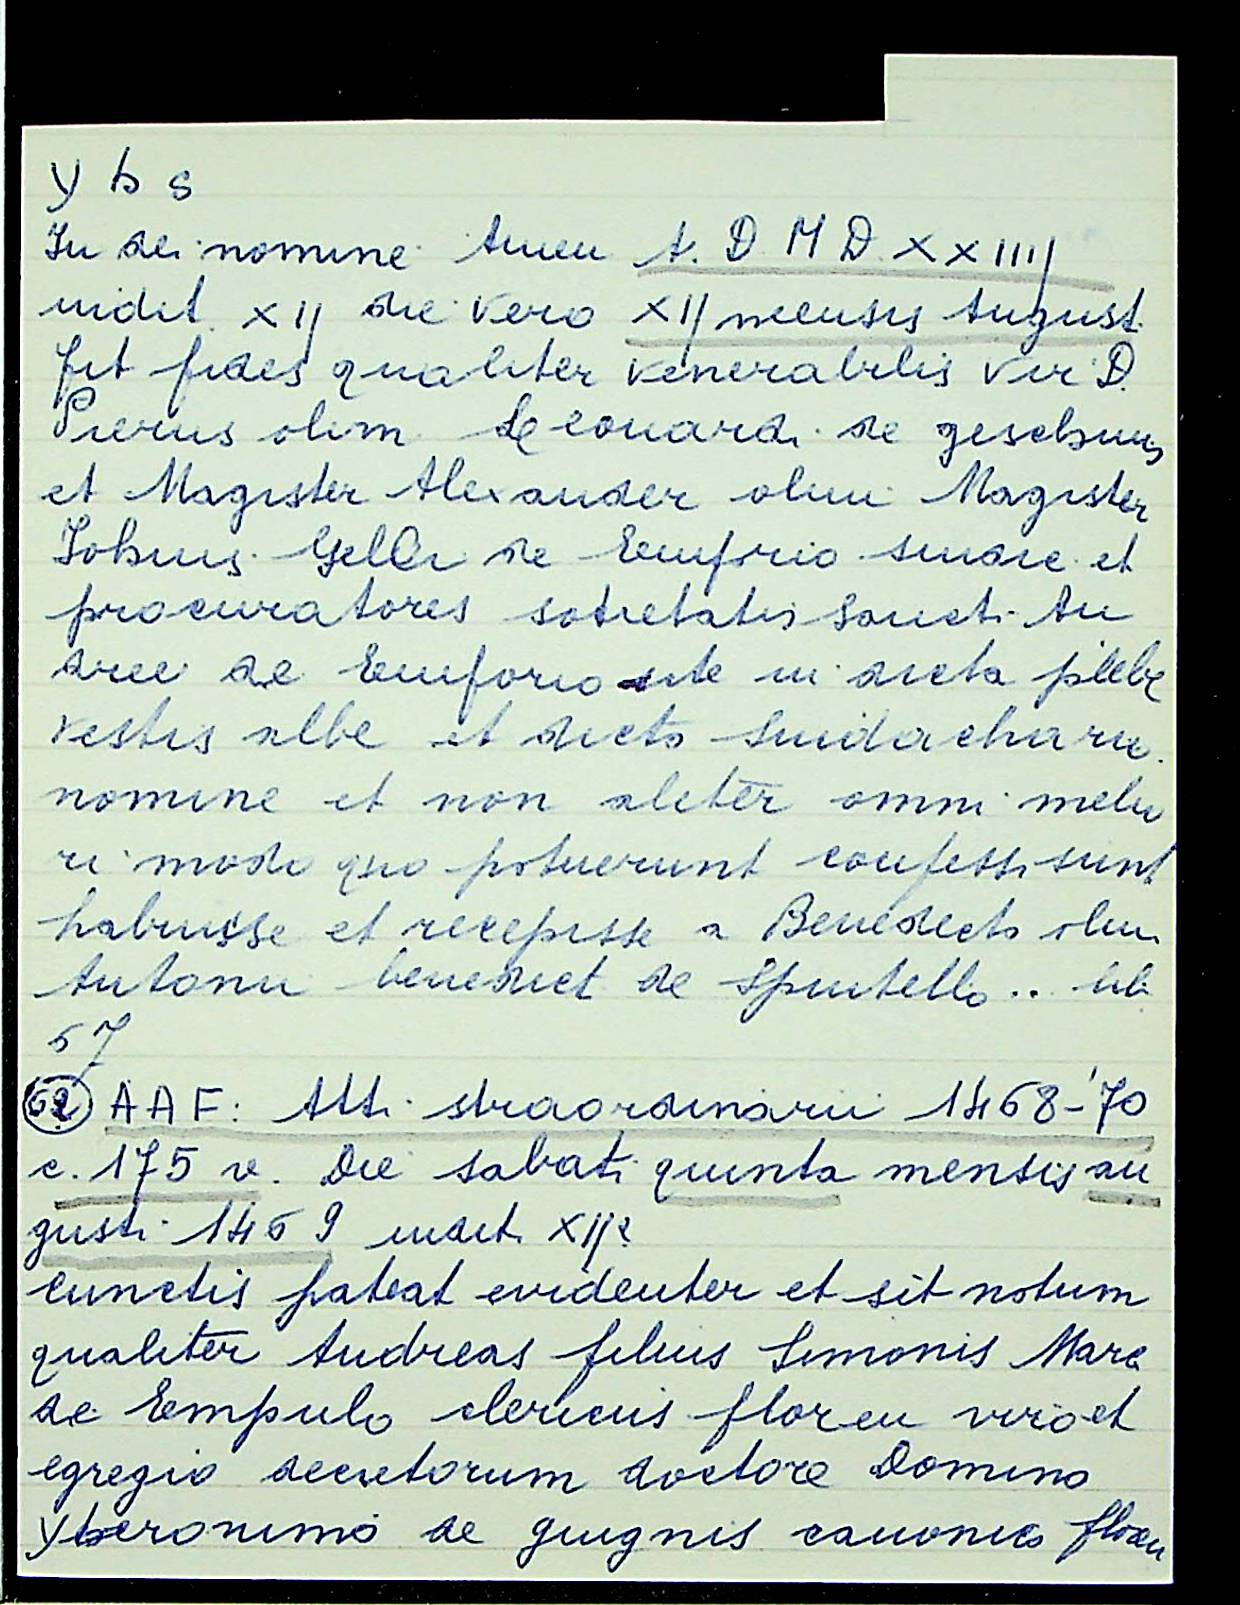 y h s
In dei nomine Amen A. D M D XXIIIJ
indit. XIJ die vero XIJ mensis August.
fit fides qualiter venerabilis vir D.
Pierus olim Leonardi de
et Magister Alexander olim Magister
Johnis. Gelli de Emporio sindic. et
procuratores sotietatis Sancti An
dree de Emporio site in dicta plebe
vestis albe et dicto sindacharie
nomine et non alitēr omni melio
ri modo quo potuerunt confessi sunt
habuisse et recepisse a Benedicto olim
Antonii benedict de Spintello .. lib
57
62 AAF: Atti straordinarii 1468-'70
c. 175 v. Die sabati quinta mensis au
gusti 1469 indit. XIJ?
cunctis pateat evidenter et sit notum
qualitēr Andreas filius Simonis Marc
de Empulo clericus floren viro et
egregio decretorum doctore Domino
Yheronimo de giugnis canonico floren